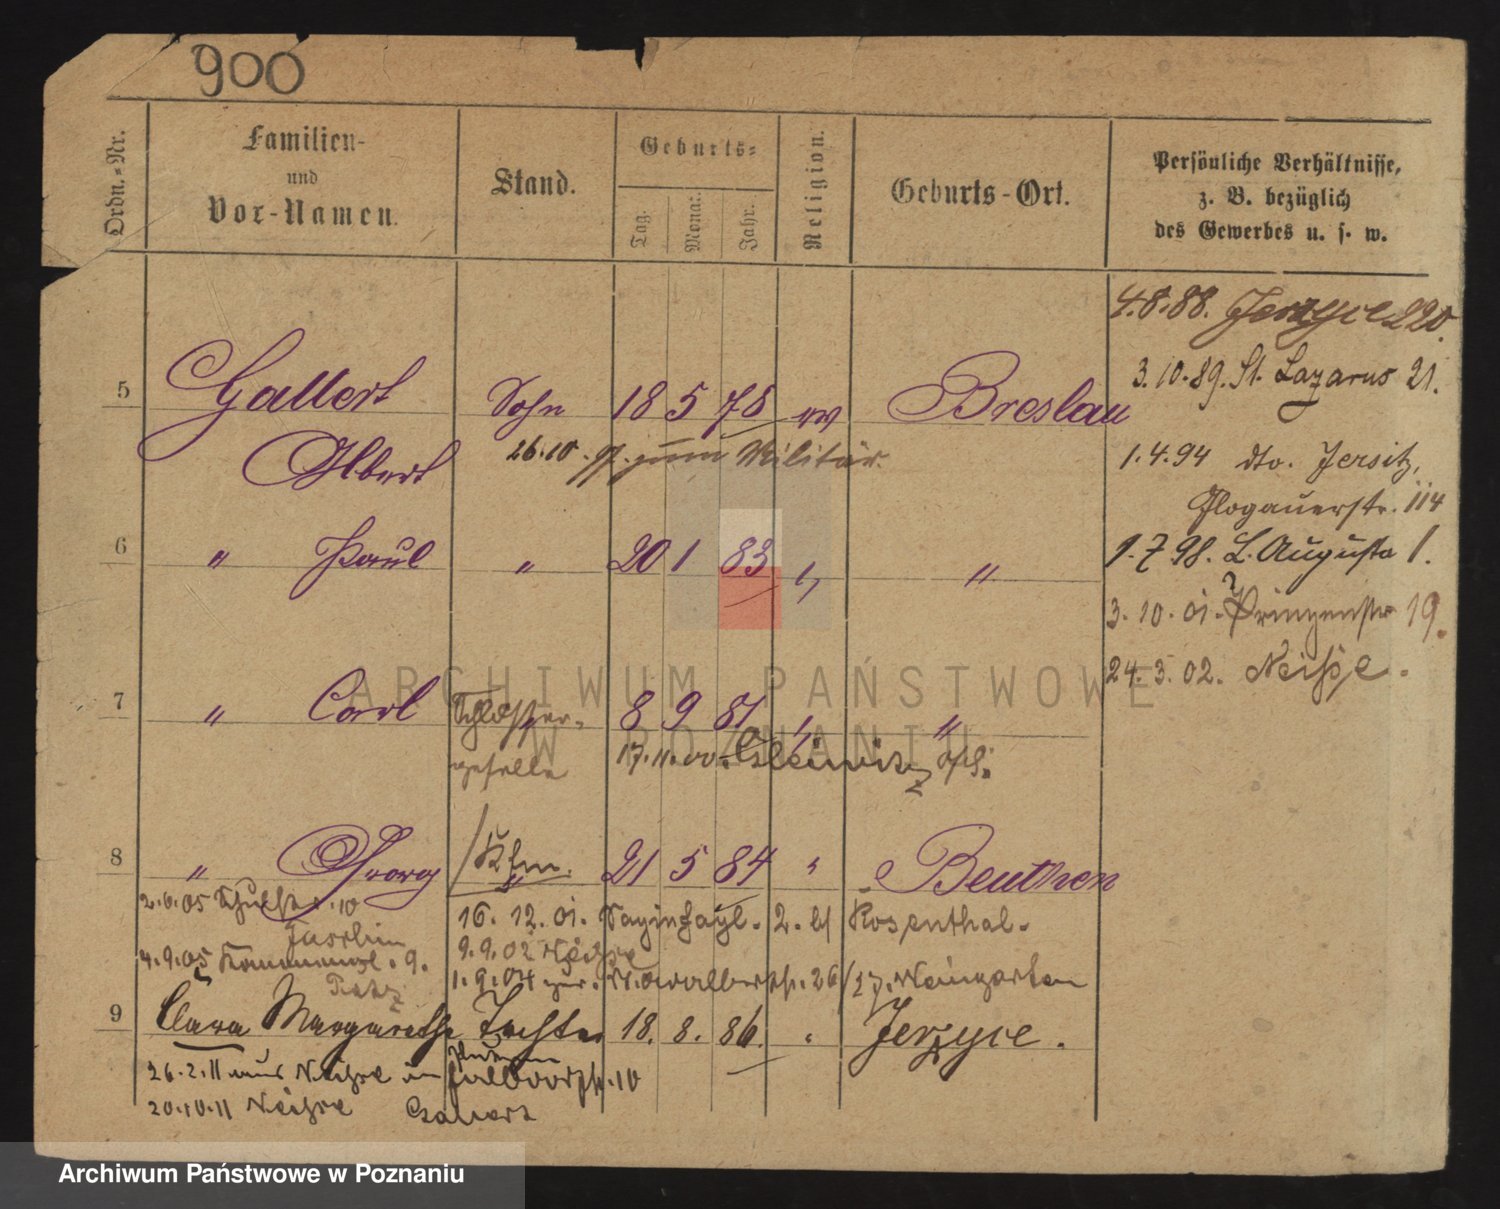 900
Ordn.-Nr.
Familien-
und
Vor-Namen.
Stand.
Geburts-
Tag.
Monat.
Jahr.
Religion.
Geburts-Ort.
Persönliche Verhältnisse,
z. B. bezüglich
des Gewerbes u. s. w.
4.8.88. Jerzyce 220.
3.10.89. St. Lazarus 21.
5 Gallert Sohn 18 5 78 ev Breslau
Albert 26.10. zum Militär.
1.4.94 dto. Jersitz,
Glogauerstr. 114
6 " Paul " 20 1 83 " "
1.7.98. L. Augusta 1.
3.10.01. Prinzenstr 19.
24.3.02. Neisse.
7 " Carl Schlosser- 8 9 81 " "
geselle 17.11.00. Gleiwitz O/S.
8 " Georg Kfm. 21 5 84 " Beuthen
2.6.05 10
16.12.01. 2. Rosenthal.
4.9.05 9.
9.9.02 Neisse
1.9.04 zur. 26 Weingarten
9 Clara Margarethe Tochter 18. 8. 86. " Jerzyce.
26.2.11 aus Neisse in 10
20.10.11 Neisse Gallert
ARCHIWUM PAŃSTWOWE
W POZNANIU
Archiwum Państwowe w Poznaniu